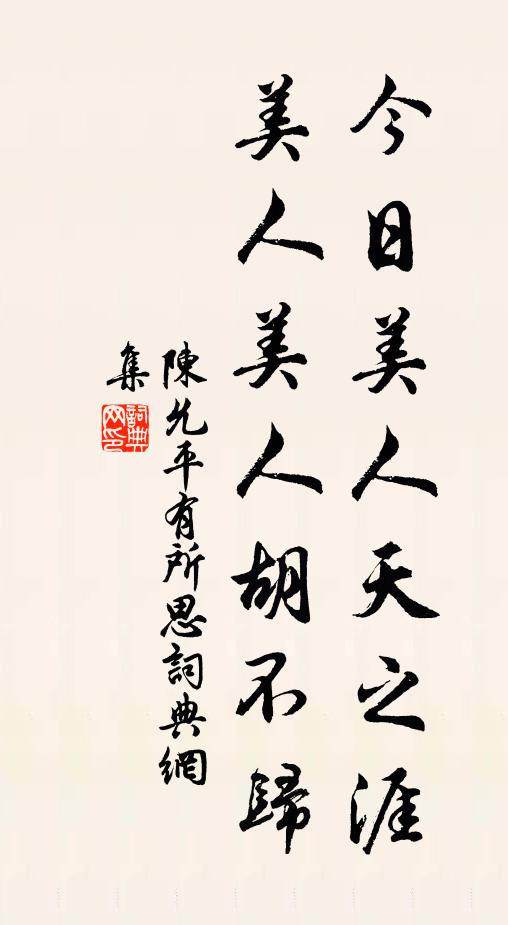 今日美人天之涯
美人美人胡不歸
陳允平有所思詞典網
集
詞典
网印